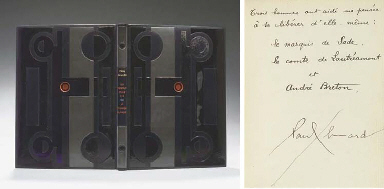 Trois hommes ont aidé ma pensée
à se libérer d'elle-même :
le marquis de Sade,
le comte de Lautréamont
et
André Breton.
Paul Eluard